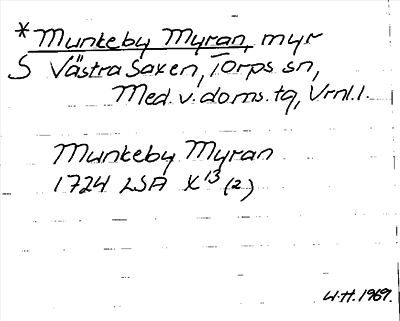 *Munkeby Myran, myr
S Västra Saxen, Torps sn,
Med. v. doms. tg, Vrml. l.
Munkeby Myran
1724 LSA X 13 (2)
W.H. 1969.